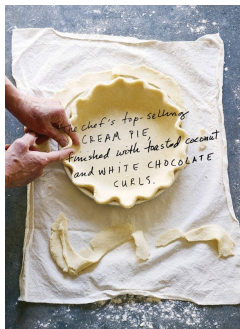 the chef's top-selling
CREAM PIE,
finished with toasted coconut
and WHITE CHOCOLATE
CURLS.